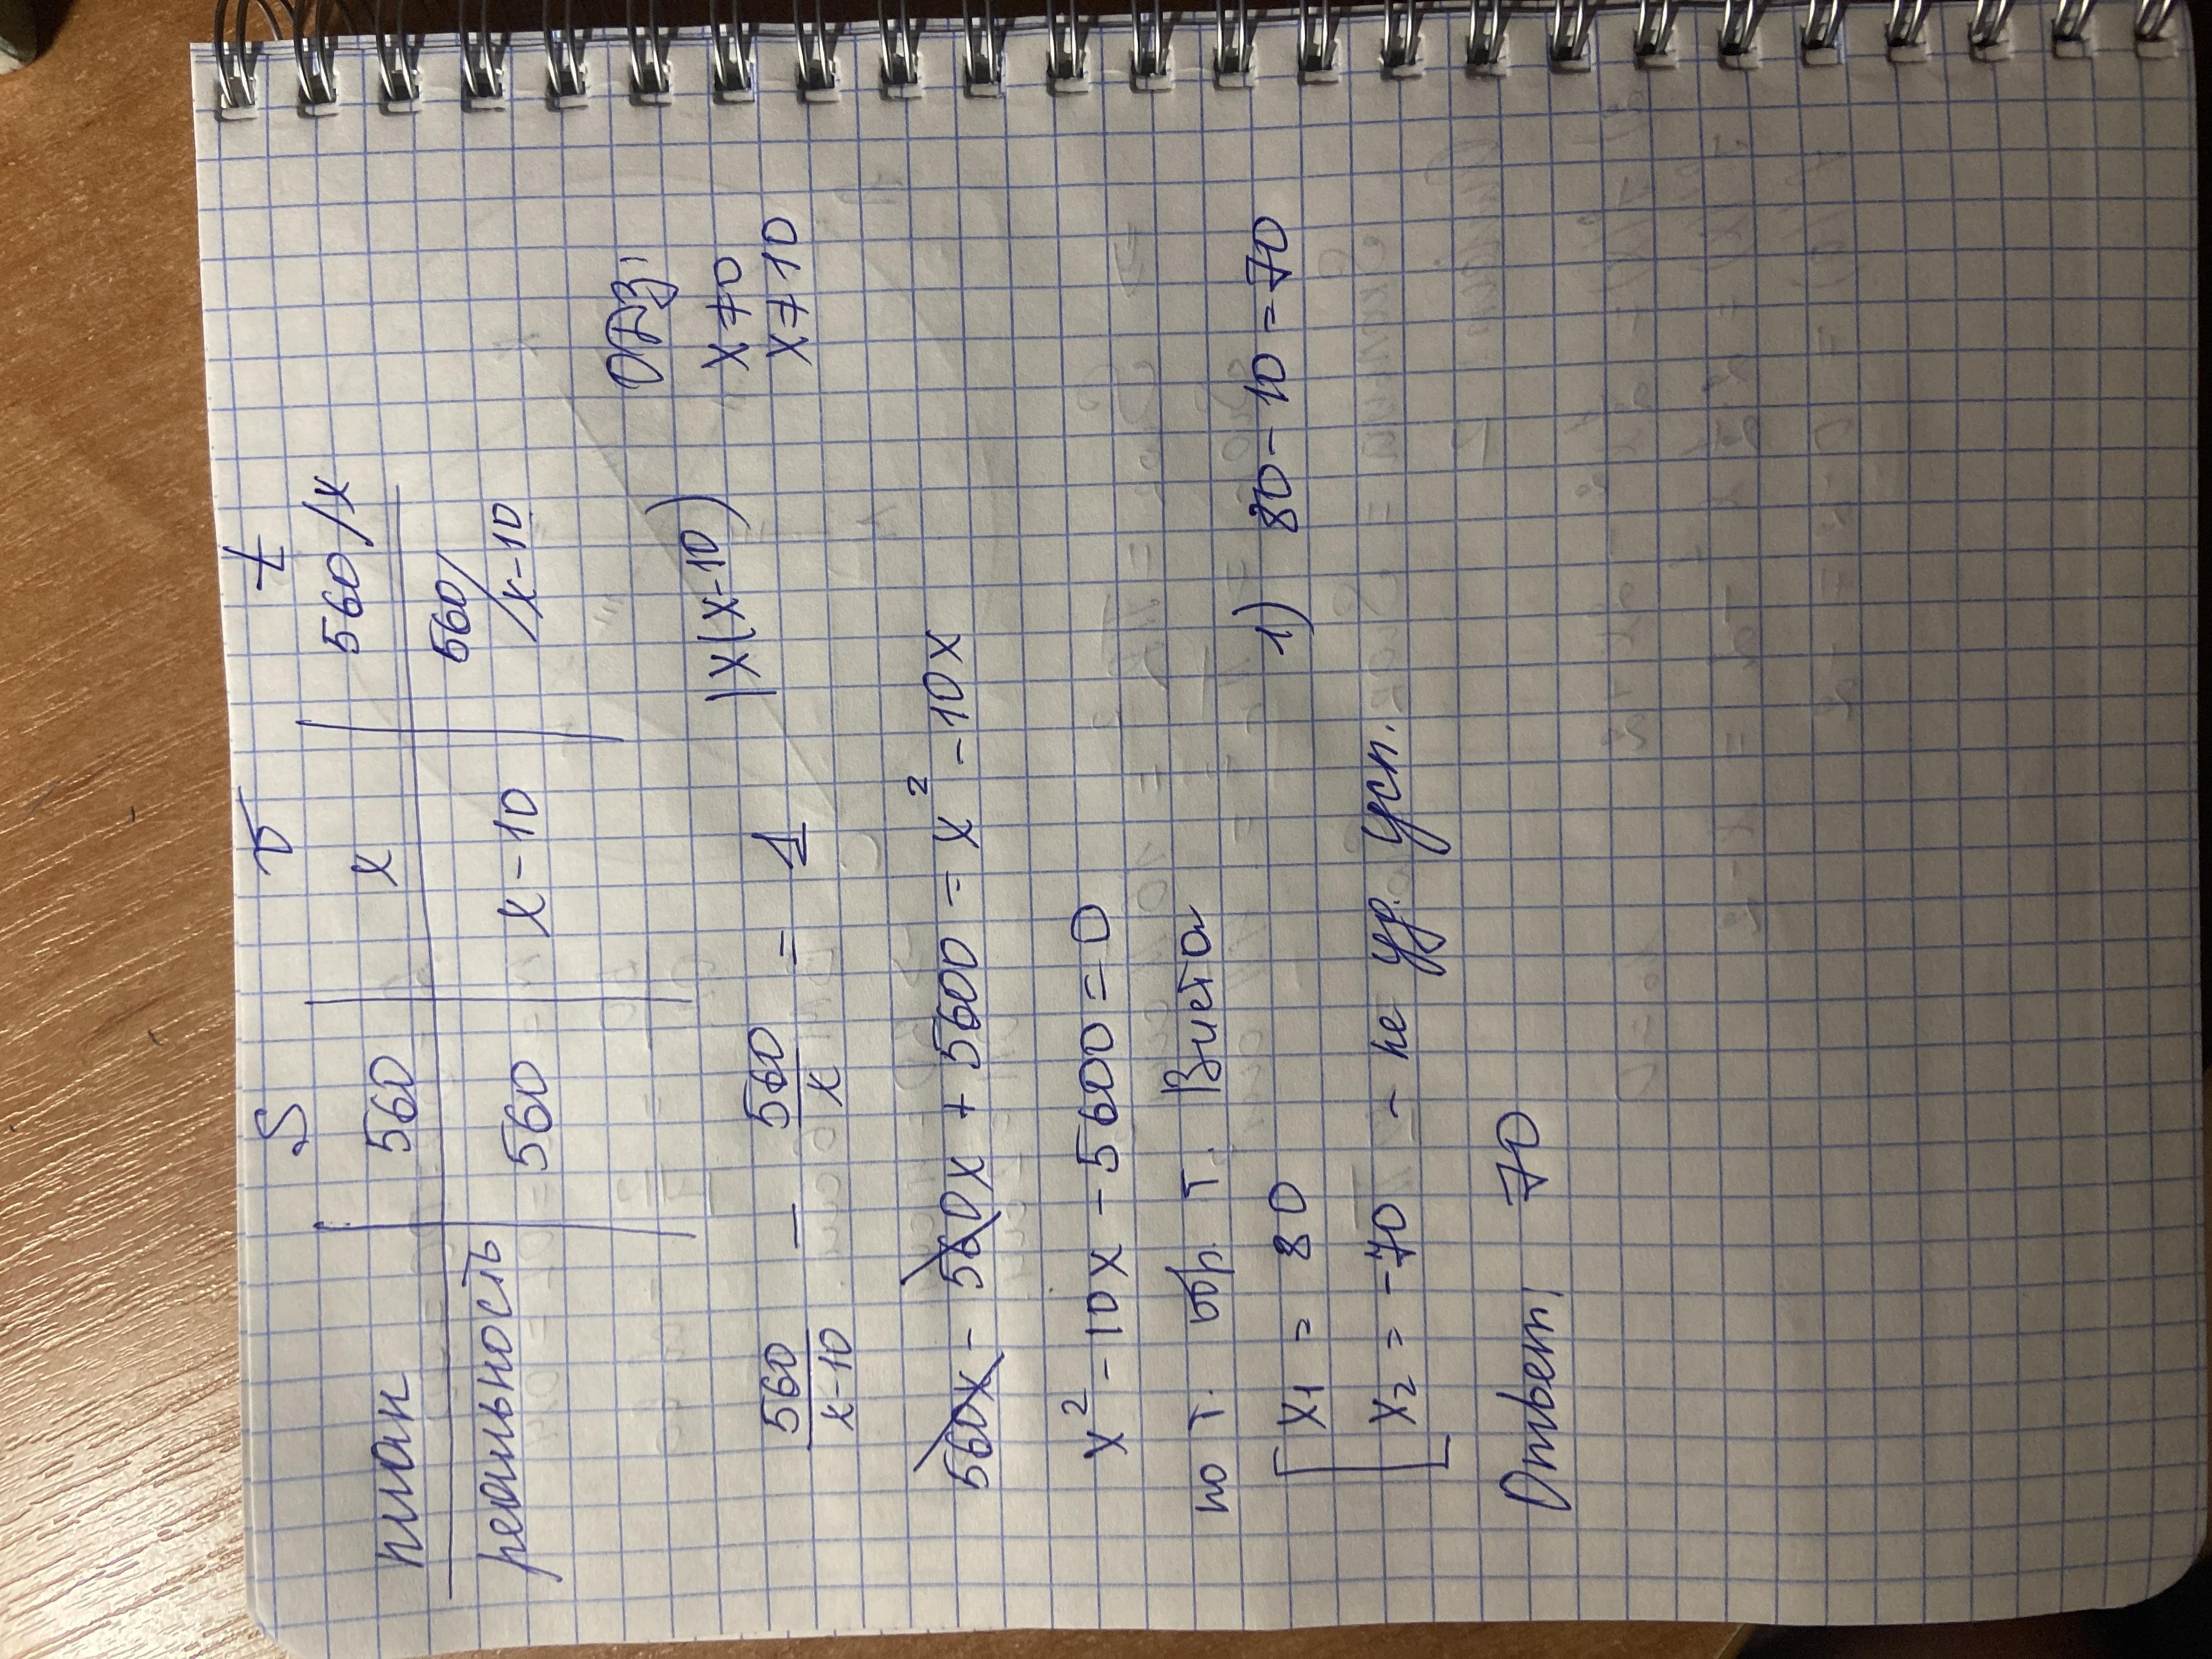 S v t
план 560 x 560/x
реальность 560 x-10 560/x-10
ОДЗ:
560/x-10 - 560/x = 1 |x(x-10) x≠0
x≠10
560x - 560x + 5600 = x² - 10x
x² - 10x - 5600 = 0
по т. обр. т. Виета
x1 = 80 1) 80 - 10 = 70
x2 = -70 - не уд. усл.
Ответ: 70